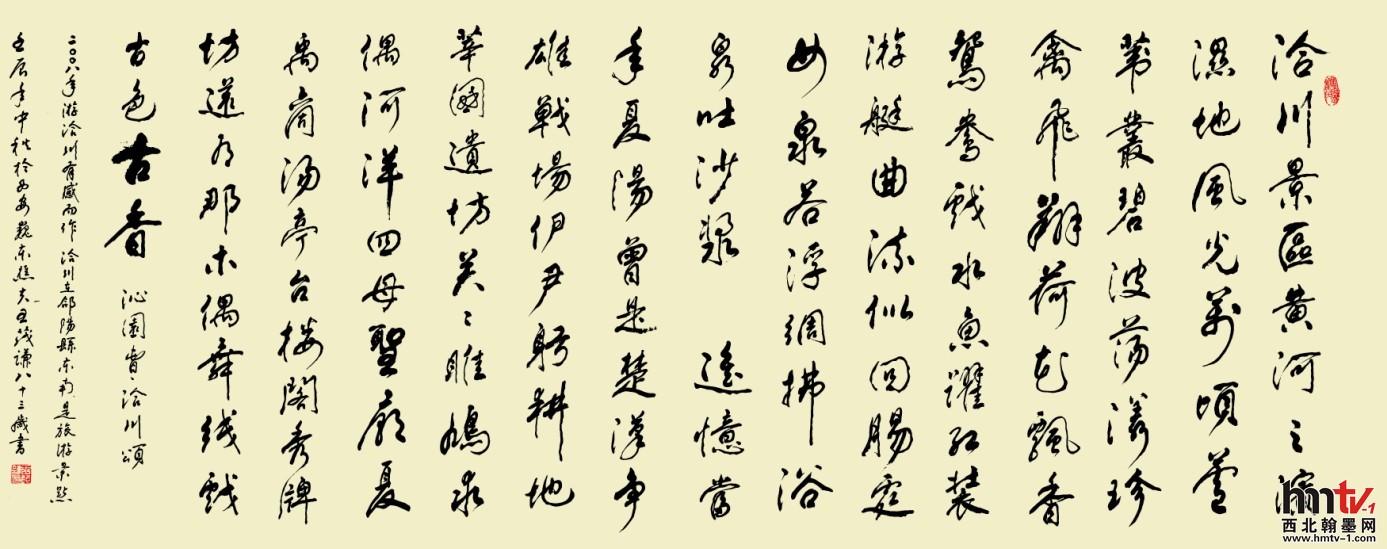 洽川景區黄河之濱
濕地風光萬頃蘆
葦叢碧波蕩漾珍
禽飛翔荷花飄香
鴛鴦戲水魚躍紅裝
游艇曲流似回腸處
女泉若浮綢拂浴
泉吐沙漿 遥憶當
年夏陽曾是楚漢争
雄戰場伊尹躬耕地
莘國遺坊关〻雎鳩求
偶河洋四母聖廟夏
禹商湯亭台楼阁秀牌
坊還有那木偶舞线戲
古色古香 沁園春·洽川頌
二〇〇八年游洽川有感而作 洽川在郃陽縣东南是旅游景點
壬辰年中秋於西安 八十三歲書
hmtv-1
西北翰墨网
www.hmtv-1.com